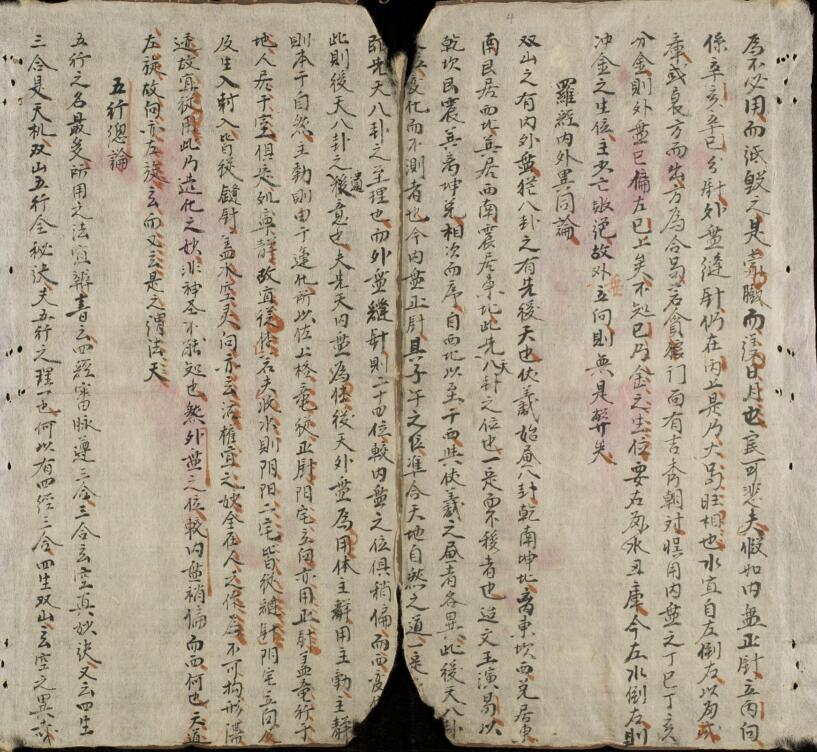 為不必用而詆毀之是㐫臓而謗日月也寔可悲夫假如内盤正針立丙向
係辛亥辛巳分針外盤縫針仍在丙上是乃火局旺相也水宜自左倒右以局或
庫或衰方而出方為合局若貪龍門面有吉秀朝対悞用内盤之丁巳丁亥
分金則外盤已偏左巳上矣不知巳乃金之生位要右局水丑庫今左水倒右則
冲金之生位主少亡敗絶故外盤立向則無是弊矣
羅經内外異同論
双山之有内外盤從八卦之有先後天也伏羲始画八卦乾南坤北离東坎西兑居東
南艮居西北巽居西南震居東北此先天八卦之位也一定而不移者也迨文王演易以
乾坎艮震巽离坤兑相次而序自西北以至于西与伏羲之画者各異此後天八卦
変化而不測者也今内盤正針其子午之位準合天地自然之道一定
即先天八卦之至理也而外盤縫針則二十四位較内盤之位俱稍偏而西変
此則後天八卦之遺意也夫先天内盤為体後天外盤為用体主静用主動主静
則本于自然主動則由于運化所以佐上格竜從正針陽宅立向亦用正針盖竜行于
地人居于室俱是処寧静故宜從体若夫收水則阴阳二宅皆從縫針阴宅立向及
反生入射入皆從縫針盖水空天向亦云活權宜之妙全在人之作為不可拘形滞
迹故宜從用此乃造化之妙非神圣不能知也然外盤之位較内盤稍偏而西何也天道
左旋故向亦左旋玄而又玄是之謂法天
五行總論
五行之名最多所用之法宜辨書云四經審脉遵三合三合玄空真妙诀又云四生
三合是天机双山五行全秘诀夫五行之理一也何以有四經三合四生双山玄空之異哉